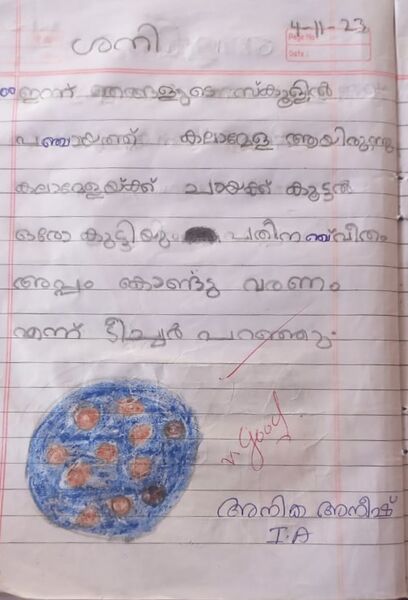 4-11-23
Page No
Date :
ശനി
ഇന്ന് ഞങ്ങളുടെ സ്കൂളിൽ
പഞ്ചായത്ത് കലാമേള ആയിരുന്നു
കലാമേളയ്ക്ക് ചായക്ക് കൂട്ടാൻ
ഒരോ കുട്ടിയും പതിനഞ്ച് വീതം
അപ്പം കൊണ്ടു വരണം
എന്ന് ടീച്ചർ പറഞ്ഞു.
v. good
അനിക അനീഷ്
I.A